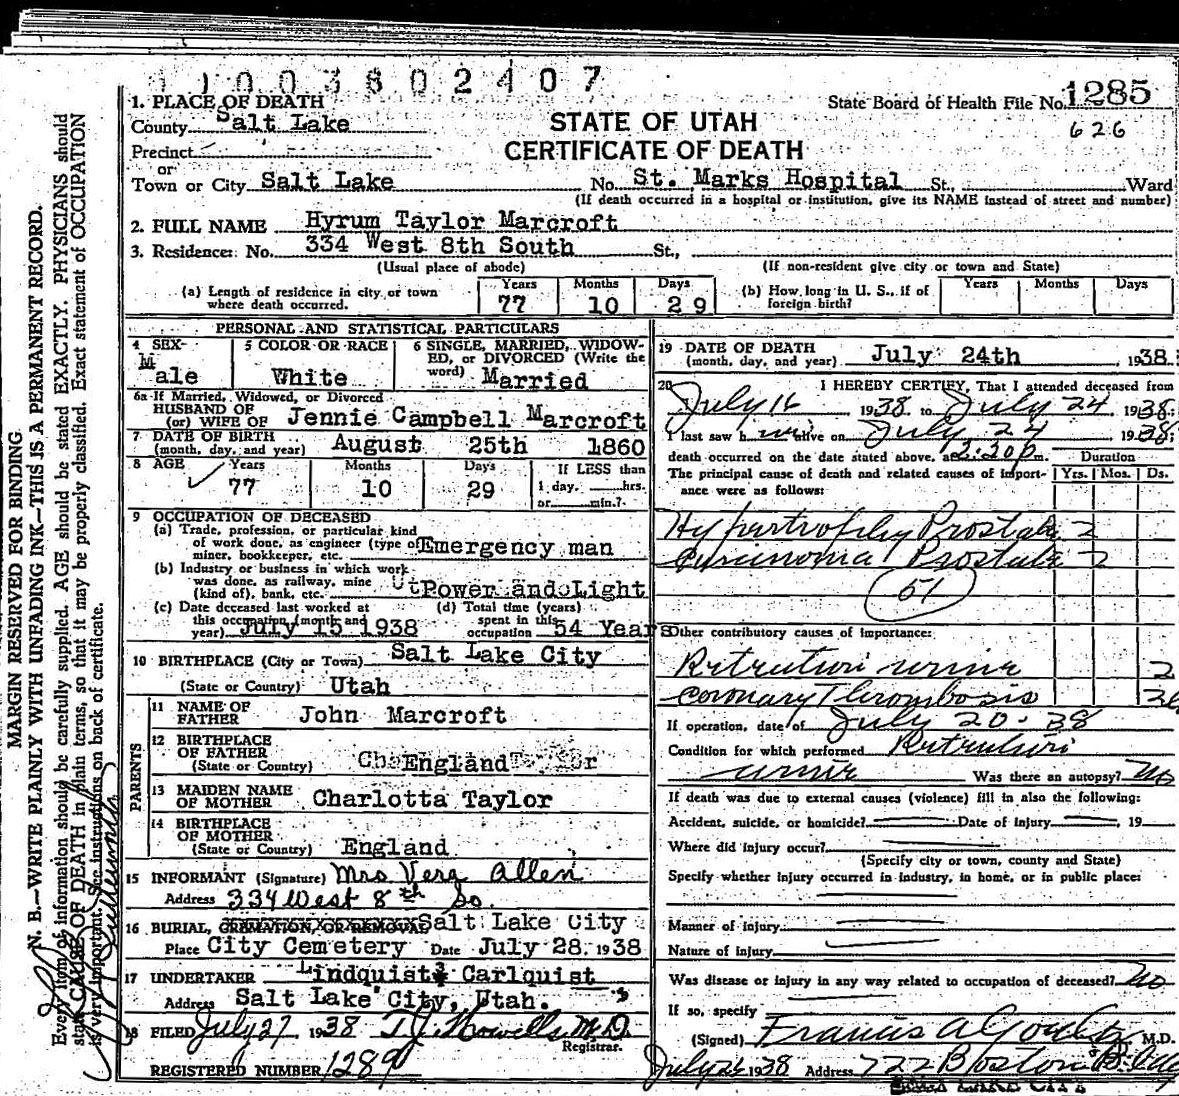 11003802407
State Board of Health File No. 1285
626
1. PLACE OF DEATH
County Salt Lake
STATE OF UTAH
CERTIFICATE OF DEATH
Precinct
or
Town or City Salt Lake No. St. Marks Hospital St., Ward
(If death occurred in a hospital or institution, give its NAME instead of street and number)
2. FULL NAME Hyrum Taylor Marcroft
3. Residence: No. 334 West 8th South St.,
(Usual place of abode) (If non-resident give city or town and State)
(a) Length of residence in city or town where death occurred. Years 77 Months 10 Days 29
(b) How long in U. S., if of foreign birth? Years Months Days
PERSONAL AND STATISTICAL PARTICULARS
4 SEX Male
5 COLOR OR RACE White
6 SINGLE, MARRIED, WIDOWED, or DIVORCED (Write the word) Married
6a If Married, Widowed, or Divorced
HUSBAND OF
(or) WIFE OF Jennie Campbell Marcroft
7 DATE OF BIRTH
(month, day, and year) August 25th 1860
8 AGE Years 77 Months 10 Days 29
If LESS than
1 day, hrs.
or min.?
9 OCCUPATION OF DECEASED
(a) Trade, profession, or particular kind
of work done, as engineer (type of Emergency man
miner, bookkeeper, etc.
(b) Industry or business in which work
was done, as railway, mine Ut Power and Light
(kind of), bank, etc.
(c) Date deceased last worked at
this occupation (month and
year) July 15 1938
(d) Total time (years)
spent in this
occupation 54 Years
10 BIRTHPLACE (City or Town) Salt Lake City
(State or Country) Utah
PARENTS
11 NAME OF
FATHER John Marcroft
12 BIRTHPLACE
OF FATHER
(State or Country) England
13 MAIDEN NAME
OF MOTHER Charlotta Taylor
14 BIRTHPLACE
OF MOTHER
(State or Country) England
15 INFORMANT (Signature) Mrs Vera Allen
Address 334 West 8th So.
16 BURIAL, CREMATION, OR REMOVAL Salt Lake City
Place City Cemetery Date July 28. 1938
17 UNDERTAKER Lindquist & Carlquist
Address Salt Lake City, Utah.
18 FILED July 27 1938 T.J. Howells M.D.
Registrar.
REGISTERED NUMBER 1289
19 DATE OF DEATH
(month, day, and year) July 24th 1938.
20 I HEREBY CERTIFY, That I attended deceased from
July 16 1938 to July 24 1938;
I last saw him alive on July 24 1938;
death occurred on the date stated above, at 2:30 p m.
Duration
The principal cause of death and related causes of importance were as follows: Yrs. Mos. Ds.
Hypertrophy Prostate 2
Carcinoma Prostate 2
51
Other contributory causes of importance:
Retention urine 2
Coronary Thrombosis
If operation, date of July 20-38
Condition for which performed Retention
urine Was there an autopsy? No
If death was due to external causes (violence) fill in also the following:
Accident, suicide, or homicide? Date of injury , 19
Where did injury occur?
(Specify city or town, county and State)
Specify whether injury occurred in industry, in home, or in public place:
Manner of injury
Nature of injury
Was disease or injury in any way related to occupation of deceased? No
If so, specify
(Signed) Francis A M.D.
July 26 1938 Address 722 Boston Bldg
SALT LAKE CITY
MARGIN RESERVED FOR BINDING
N. B.—WRITE PLAINLY WITH UNFADING INK—THIS IS A PERMANENT RECORD.
Every item of information should be carefully supplied. AGE should be stated EXACTLY. PHYSICIANS should
state CAUSE OF DEATH in plain terms, so that it may be properly classified. Exact statement of OCCUPATION
is very important. See instructions on back of certificate.